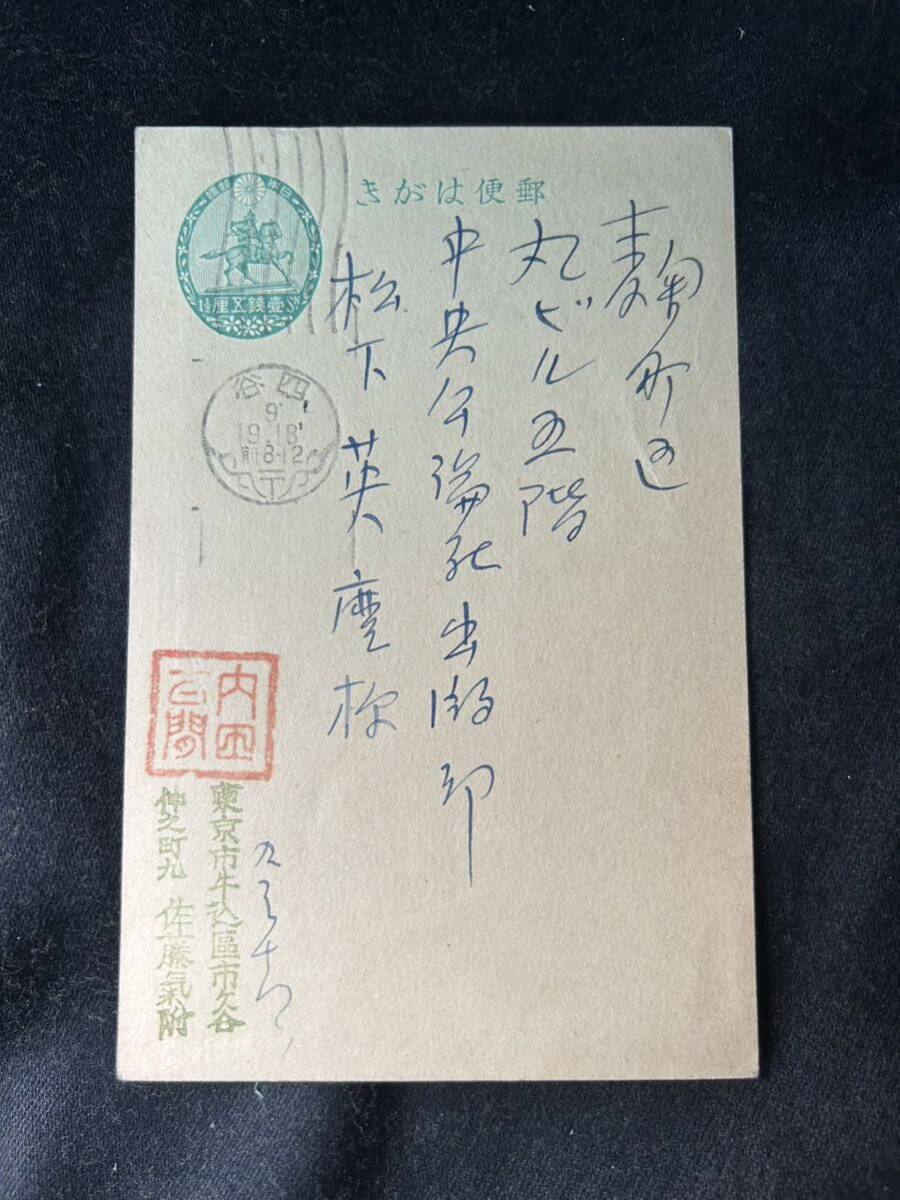 郵便はがき
壹錢五厘
四谷
9
19.18
前8-12
麹町区
丸ビル五階
中央公論社出版部
松下英麿様
内田百閒
東京市牛込區市ヶ谷
仲之町九 佐藤氣附